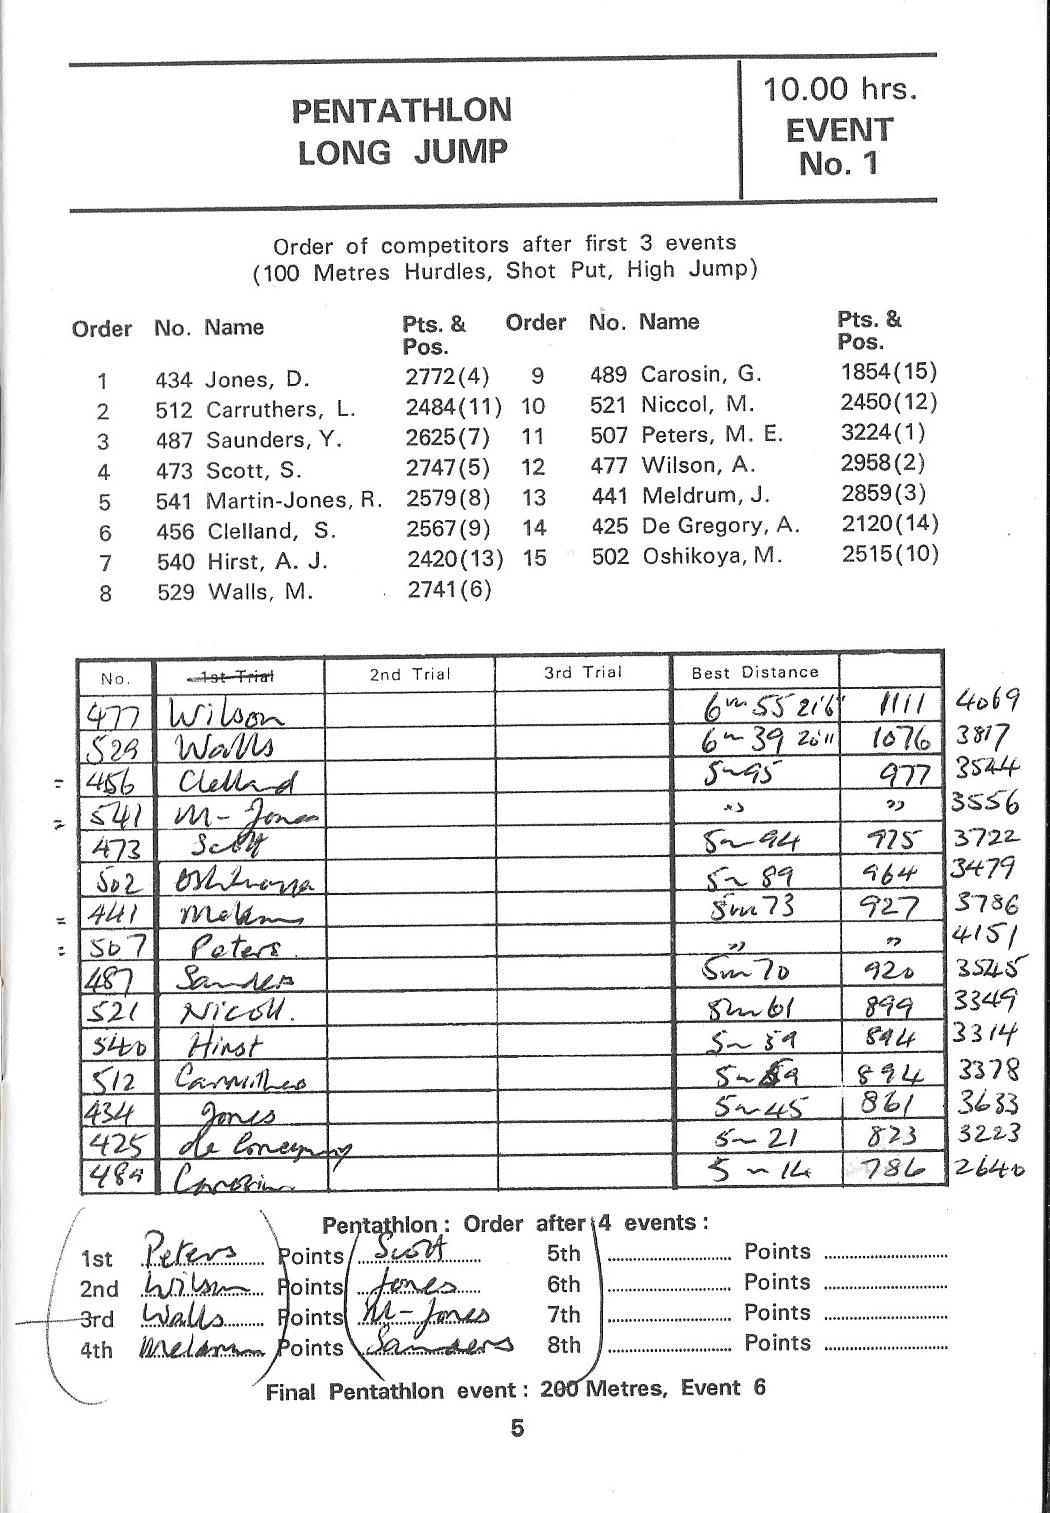 PENTATHLON
LONG JUMP
10.00 hrs.
EVENT
No. 1
Order of competitors after first 3 events
(100 Metres Hurdles, Shot Put, High Jump)
Order No. Name Pts. & Pos. Order No. Name Pts. & Pos.
1 434 Jones, D. 2772(4) 9 489 Carosin, G. 1854(15)
2 512 Carruthers, L. 2484(11) 10 521 Niccol, M. 2450(12)
3 487 Saunders, Y. 2625(7) 11 507 Peters, M. E. 3224(1)
4 473 Scott, S. 2747(5) 12 477 Wilson, A. 2958(2)
5 541 Martin-Jones, R. 2579(8) 13 441 Meldrum, J. 2859(3)
6 456 Clelland, S. 2567(9) 14 425 De Gregory, A. 2120(14)
7 540 Hirst, A. J. 2420(13) 15 502 Oshikoya, M. 2515(10)
8 529 Walls, M. 2741(6)
No. 1st Trial 2nd Trial 3rd Trial Best Distance
477 Wilson 6m 55 21'6" 1111 4069
529 Walls 6m 39 20'11 1076 3817
= 456 Clelland 5m 95 977 3544
= 541 M-Jones " " 3556
473 Scott 5m 94 975 3722
502 Oshikoya 5m 89 964 3479
= 441 5m 73 927 3786
= 507 Peters " " 4151
487 Sanders 5m 70 920 3545
521 Nicoll. 5m 61 899 3349
540 Hirst 5m 59 894 3314
512 Carruthers 5m 59 894 3378
434 Jones 5m 45 861 3633
425 de Gregory 5m 21 823 3223
489 Carosin 5m 14 786 2640
Pentathlon: Order after 4 events:
1st Peters Points Scott 5th Points
2nd Wilson Points Jones 6th Points
3rd Walls Points M-Jones 7th Points
4th Meldrum Points Sanders 8th Points
Final Pentathlon event: 200 Metres, Event 6
5